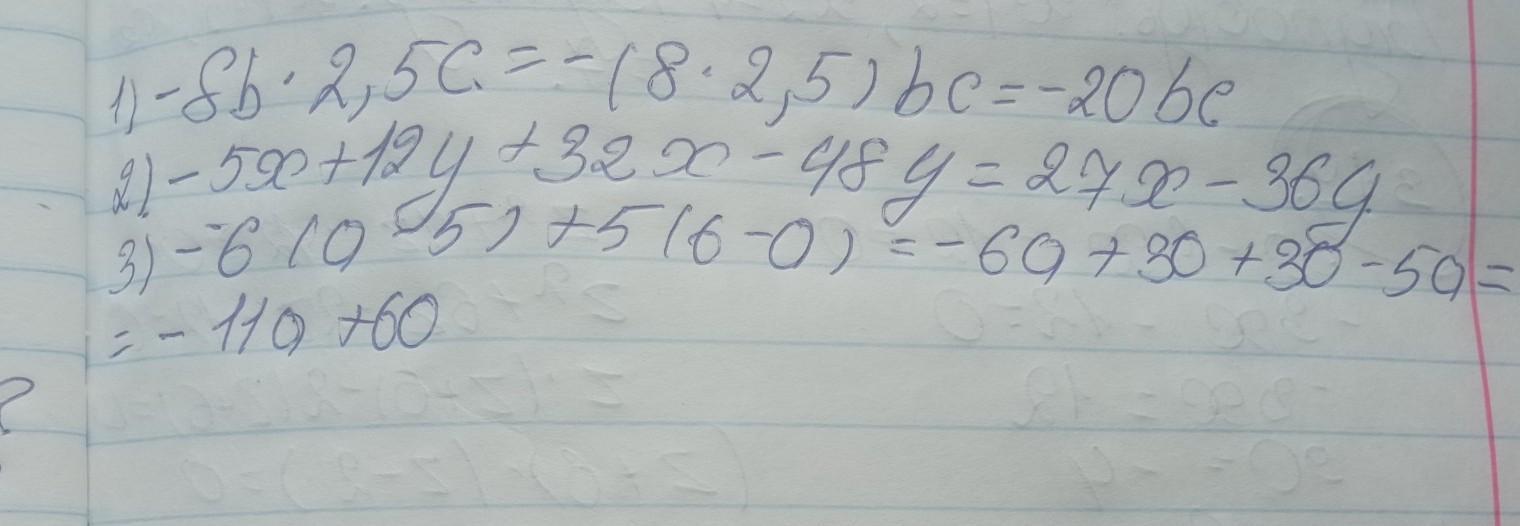 1) -8b · 2,5c = -(8 · 2,5) bc = -20bc
2) -5x + 12y + 32x - 48y = 27x - 36y
3) -6(a - 5) + 5(6 - a) = -6a + 30 + 30 - 5a =
= -11a + 60